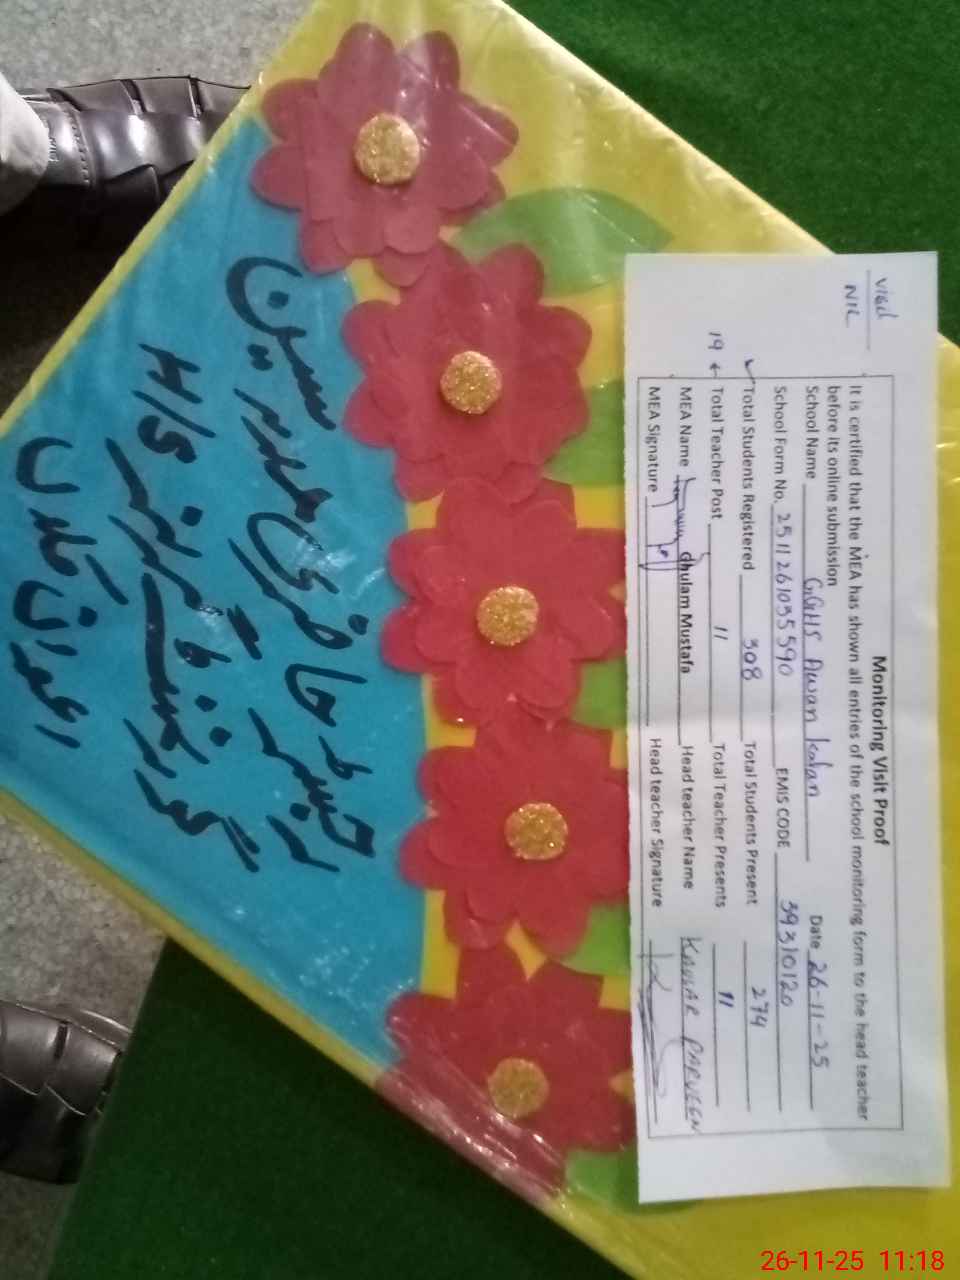 Monitoring Visit Proof
It is certified that the MEA has shown all entries of the school monitoring form to the head teacher
before its online submission
School Name GGHS Awan Kalan Date 26-11-25
School Form No. 2511261055590 EMIS CODE 39310120
Total Students Registered 308 Total Students Present 274
19 ← Total Teacher Post 11 Total Teacher Presents 11
MEA Name Ghulam Mustafa Head teacher Name KAUSAR PARVEEN
MEA Signature Head teacher Signature
NIL
رجسٹر حاضری مدرسین
گورنمنٹ گرلز H/S
اعوان کلاں
26-11-25 11:18